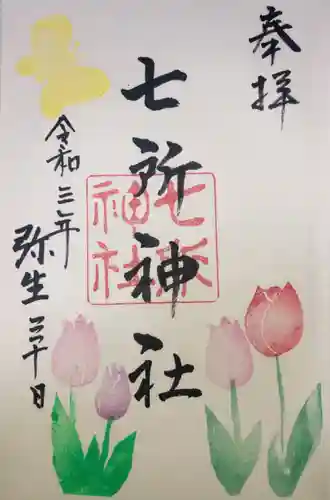 奉拝
七所神社
七所
神社
令和三年
弥生三十日